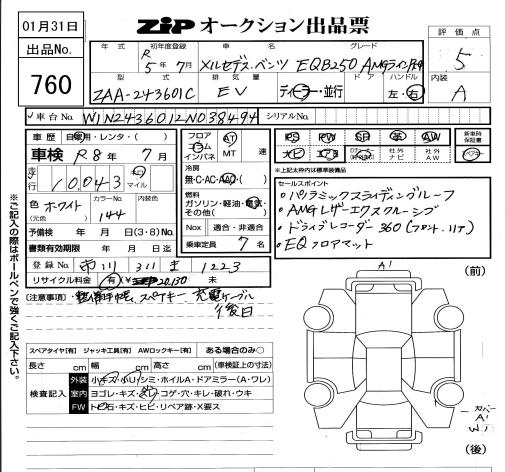 01月31日
ZIP オークション出品票
評価点
5
出品No.
760
年式
初年度登録
R 5年7月
車名
メルセデス・ベンツ EQB250
グレード
AMGラインPKG
型式
ZAA-243601C
排気量
EV
ドア
ハンドル
ディーラー・並行
左・右
内装
A
車台No.
W1N2436012N038494
シリアルNo.
車歴
自家用・レンタ・( )
車検 R8年7月
走行
10,043
キロ
マイル
色
ホワイト
(元色)
カラーNo.
144
内装色
予備検 年 月 日(3・8)No.
書類有効期限 年 月 日迄
登録No.
市川 311 ま 1223
リサイクル料金
有
未
フロア
コラム
インパネ
AT
MT
速
冷房
無・C・AC・AAC・( )
燃料
ガソリン・軽油・電気・
その他( )
Nox
適合・非適合
乗車定員
7名
PS
PW
SR
革
AW
ナビ
エアB
社外
ナビ
社外
AW
新車時
保証書
※上記太枠内は標準装備品
セールスポイント
・パノラミックスライディングルーフ
・AMGレザーエクスクルーシブ
・ドライブレコーダー360(フロント・リア)
・EQフロアマット
(注意事項)
スペアキー 充電ケーブル
後日
スペアタイヤ[有] ジャッキ工具[有] AWロックキー[有] ある場合のみ○
長さ cm 幅 cm 高さ cm (車検証上の寸法)
検査記入
外装
小キズ・小U・シミ・ホイルA・ドアミラー(A・ワレ)
室内
ヨゴレ・キズ・スレ・コゲ・穴・キレ・破れ・ウキ
FW
トビ石・キズ・ヒビ・リペア跡・X要ス
※ご記入の際はボールペンで強くご記入下さい。
A1
(前)
カバー
A1
W1
(後)